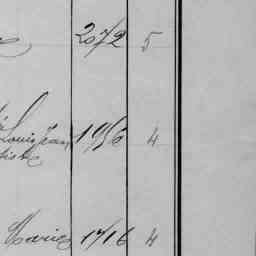 2072 5
Louis Jean 1956 4
Marie 1716 4